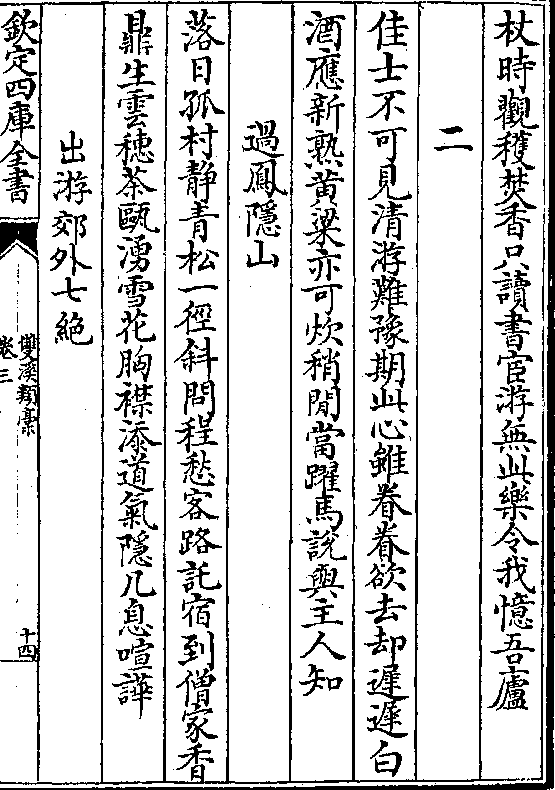 杖時觀穫焚香只讀書宦游無此樂令我憶吾廬
二
佳士不可見清游難豫期此心雖眷眷欲去却遲遲白
酒應新熟黄粱亦可炊稍閒當躍馬說與主人知
過鳳隱山
落日孤村静青松一徑斜問程愁客路託宿到僧家香
鼎生雲穗茶甌湧雪花胸襟添道氣隱几息喧譁
出游郊外七絶
欽定四庫全書
雙溪類稾
卷三
十四